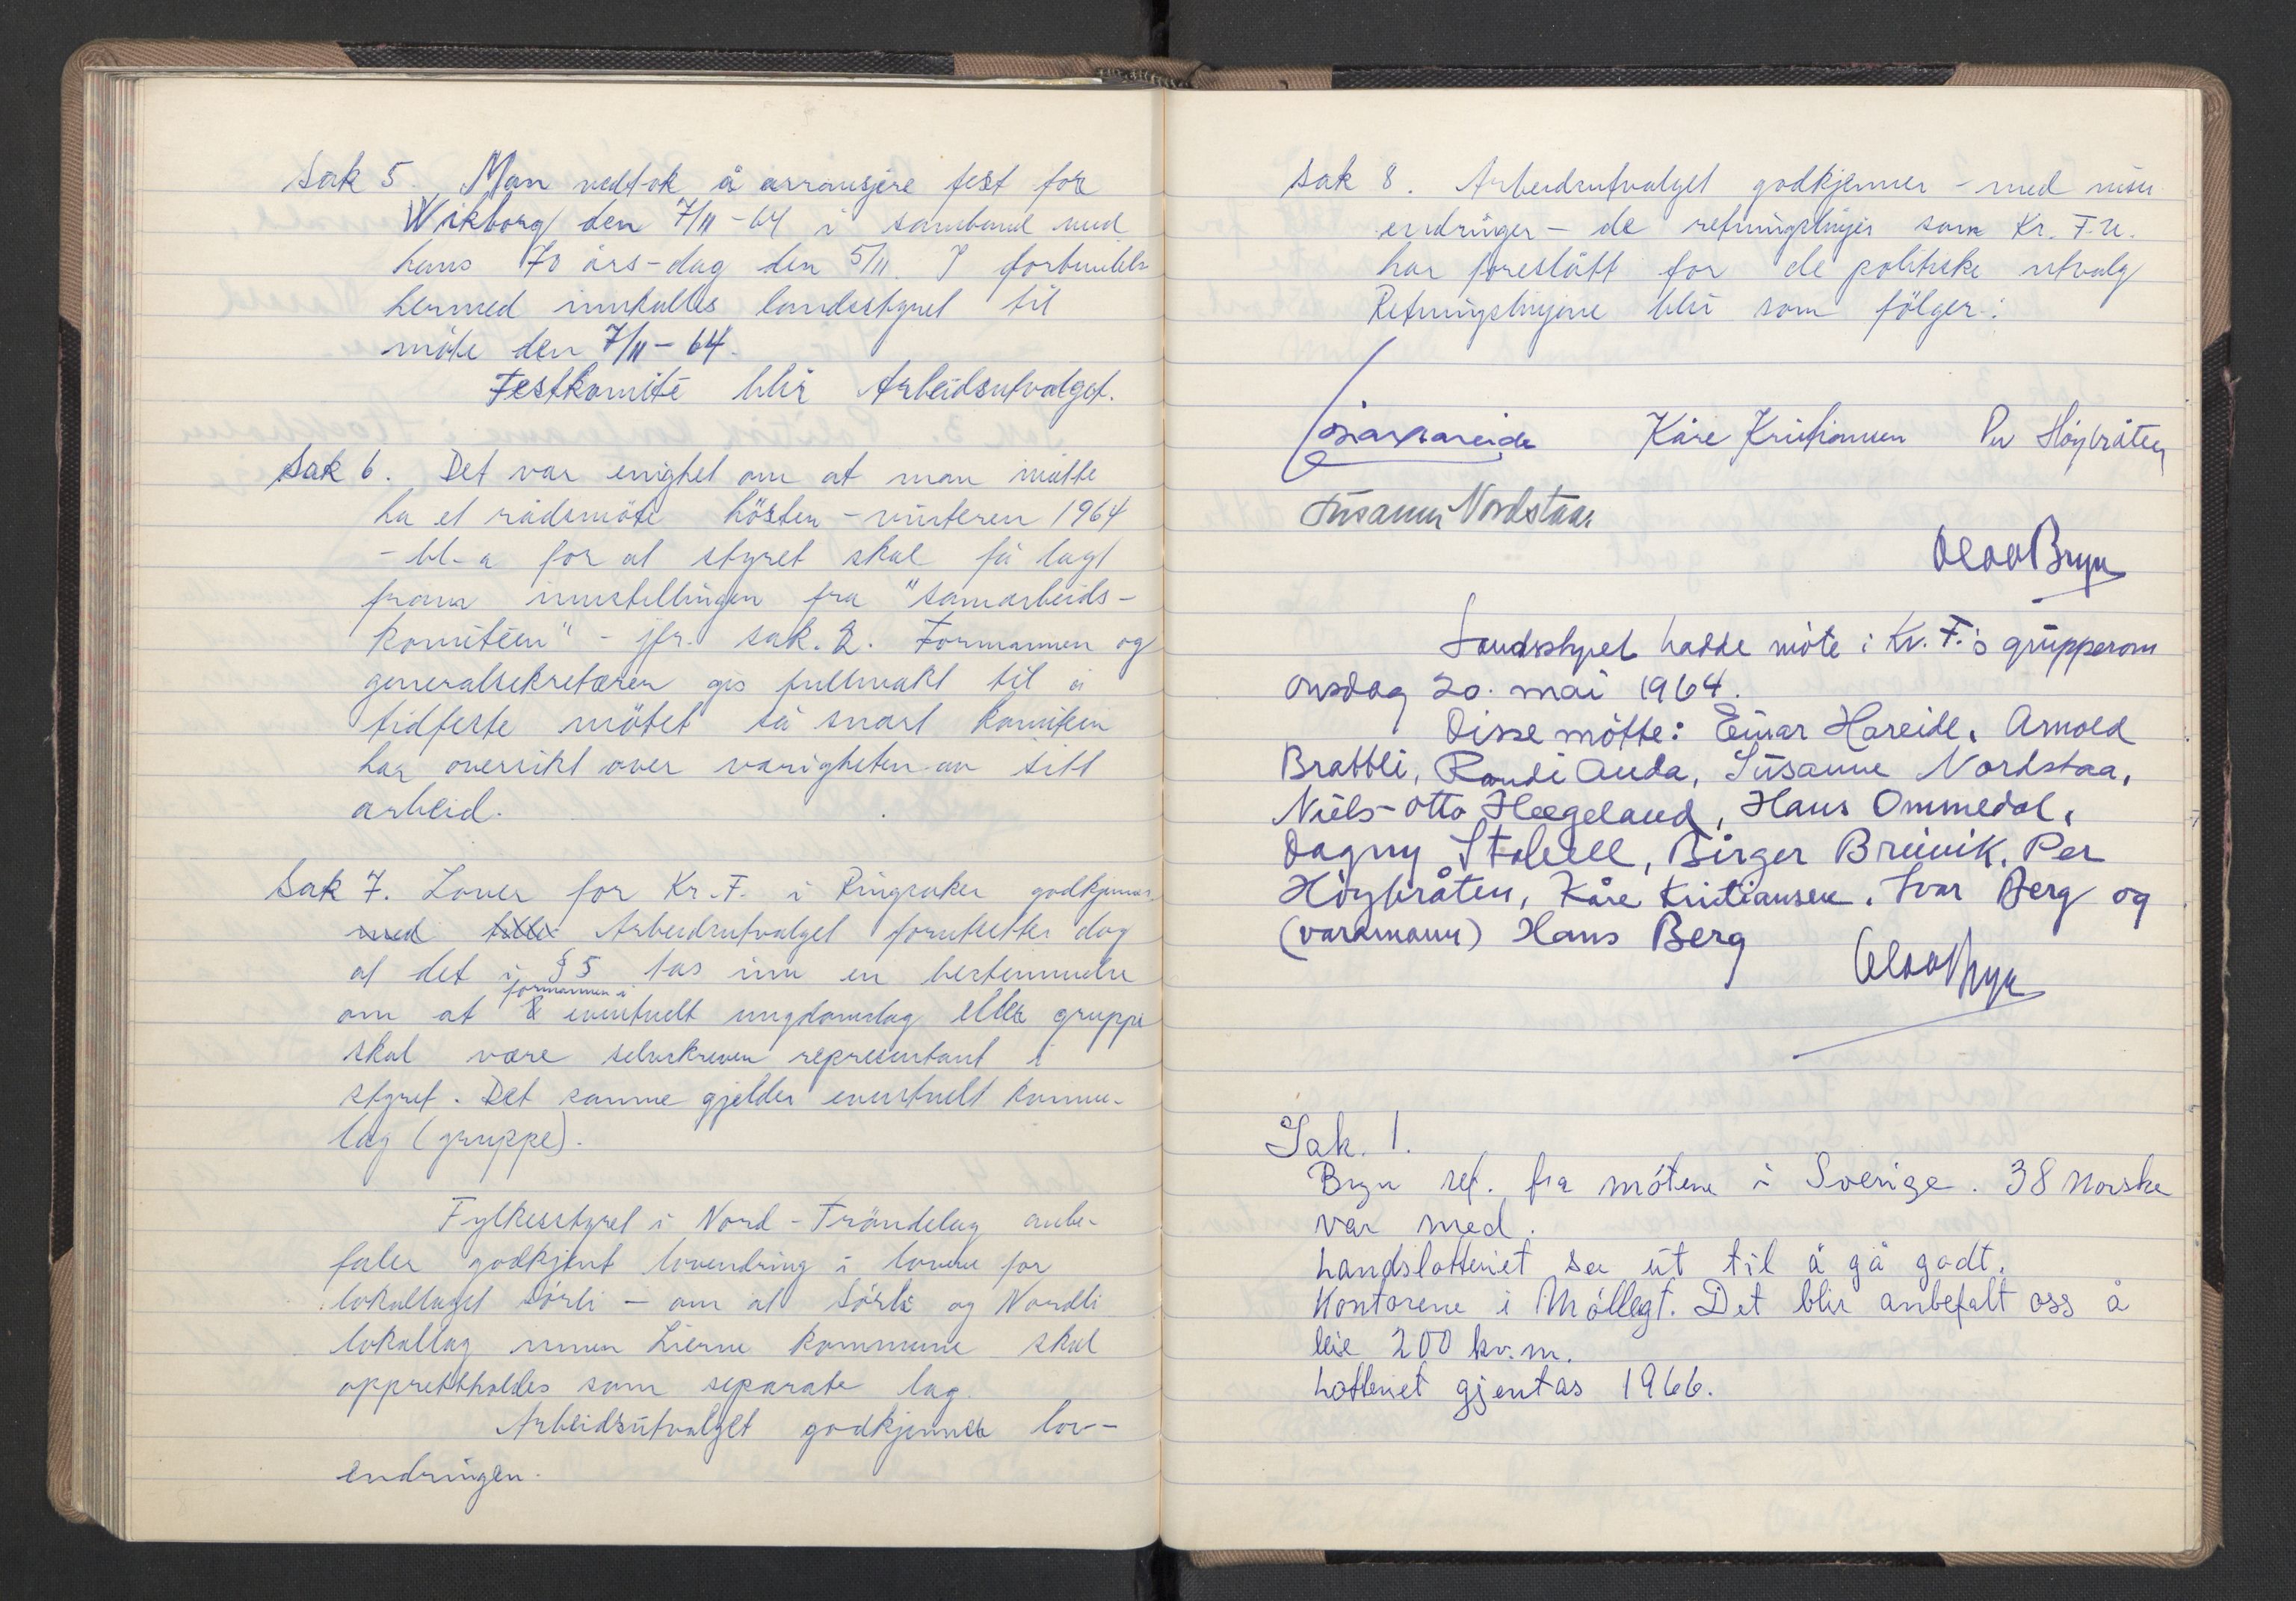 Sak 5. Man vedtok å arransjere fest for
Wikborg den 7/11-64 i samband med
hans 70 års-dag den 5/11. I forbindelse
hermed innkalles landsstyret til
møte den 7/11-64.
Festkomité blir Arbeidsutvalget.
Sak 6. Det var enighet om at man måtte
ha et rådsmöte hösten - vinteren 1964
- bl. a for at styret skal få lagt
fram innstillingen fra "samarbeids-
komitéen" - jfr. sak. 2. Formannen og
generalsekretæren gis fullmakt til å
tidfeste mötet så snart komiteen
har oversikt over varigheten av sitt
arbeid.
Sak 7. Lover for Kr. F. i Ringsaker godkjennes
med Arbeidsutvalget forutsetter dog
at det i § 5 tas inn en bestemmelse
formannen i
om at eventuelt ungdomslag eller gruppe
skal være selvskreven representant i
styret. Det samme gjelder eventuelt kvinne-
lag (gruppe).
Fylkesstyret i Nord-Tröndelag anbe-
faler godkjent lovendring i lovene for
lokallaget Sörli - om at Sörli og Nordli
lokallag innen Lierne kommune skal
opprettholdes som separate lag.
Arbeidsutvalget godkjenner lov-
endringen.
Sak 8. Arbeidsutvalget godkjenner - med visse
endringer - de retningslinjer som Kr. F. U.
har foreslått for de politiske utvalg
Retningslinjene blir som fölger:
Einar Hareide Kåre Kristiansen Per Höybråten
Susanne Nordstaa
Olav Bryn
Landsstyret hadde möte i Kr. F.'s grupperom
onsdag 20. mai 1964.
Disse mötte: Einar Hareide, Arnold
Brattli, Randi Anda, Susanne Nordstaa,
Niels-Otto Hægeland, Hans Ommedal,
Dagny Stalsell, Birger Breivik, Per
Höybråten, Kåre Kristiansen, Ivar Berg og
(varamann) Hans Berg
Olav Bryn
Sak. 1.
Bryn ref. fra mötene i Sverige. 38 norske
var med.
Landslotteriet ser ut til å gå godt.
Kontorene i Möllegt. Det blir anbefalt oss å
leie 200 kv. m.
Lotteriet gjentas 1966.